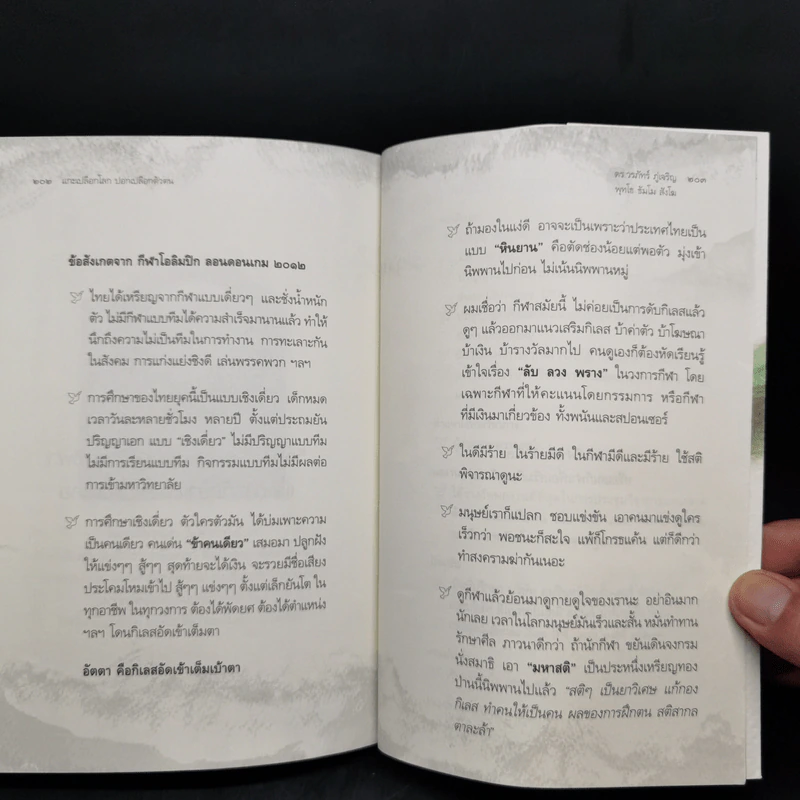 ๒๐๒ แกะเปลือกโลก ปอกเปลือกตัวตน
ข้อสังเกตจาก กีฬาโอลิมปิก ลอนดอนเกม ๒๐๑๒
ไทยได้เหรียญจากกีฬาแบบเดี่ยวๆ และชั่งน้ำหนัก
ตัว ไม่มีกีฬาแบบทีมได้ความสำเร็จมานานแล้ว ทำให้
นึกถึงความไม่เป็นทีมในการทำงาน การทะเลาะกัน
ในสังคม การแก่งแย่งชิงดี เล่นพรรคพวก ฯลฯ
การศึกษาของไทยยุคนี้เป็นแบบเชิงเดี่ยว เด็กหมด
เวลาวันละหลายชั่วโมง หลายปี ตั้งแต่ประถมยัน
ปริญญาเอก แบบ "เชิงเดี่ยว" ไม่มีปริญญาแบบทีม
ไม่มีการเรียนแบบทีม กิจกรรมแบบทีมไม่มีผลต่อ
การเข้ามหาวิทยาลัย
การศึกษาเชิงเดี่ยว ตัวใครตัวมัน ได้บ่มเพาะความ
เป็นคนเดียว คนเด่น "ข้าคนเดียว" เสมอมา ปลูกฝัง
ให้แข่งๆๆ สู้ๆๆ สุดท้ายจะได้เงิน จะรวยมีชื่อเสียง
ประโคมโหมเข้าไป สู้ๆๆ แข่งๆๆ ตั้งแต่เล็กยันโต ใน
ทุกอาชีพ ในทุกวงการ ต้องได้พัดยศ ต้องได้ตำแหน่ง
ฯลฯ โดนกิเลสอัดเข้าเต็มตา
อัตตา คือกิเลสอัดเข้าเต็มเบ้าตา
ดร.วรภัทร์ ภู่เจริญ ๒๐๓
พุทโธ ธัมโม สังโฆ
ถ้ามองในแง่ดี อาจจะเป็นเพราะว่าประเทศไทยเป็น
แบบ "หินยาน" คือตัดช่องน้อยแต่พอตัว มุ่งเข้า
นิพพานไปก่อน ไม่เน้นนิพพานหมู่
ผมเชื่อว่า กีฬาสมัยนี้ ไม่ค่อยเป็นการดับกิเลสแล้ว
ดูๆ แล้วออกมาแนวเสริมกิเลส บ้าค่าตัว บ้าโฆษณา
บ้าเงิน บ้ารางวัลมากไป คนดูเองก็ต้องหัดเรียนรู้
เข้าใจเรื่อง "ลับ ลวง พราง" ในวงการกีฬา โดย
เฉพาะกีฬาที่ให้คะแนนโดยกรรมการ หรือกีฬา
ที่มีเงินมาเกี่ยวข้อง ทั้งพนันและสปอนเซอร์
ในดีมีร้าย ในร้ายมีดี ในกีฬามีดีและมีร้าย ใช้สติ
พิจารณาดูนะ
มนุษย์เราก็แปลก ชอบแข่งขัน เอาคนมาแข่งดูใคร
เร็วกว่า พอชนะก็สะใจ แพ้ก็โกรธแค้น แต่ก็ดีกว่า
ทำสงครามฆ่ากันเนอะ
ดูกีฬาแล้วย้อนมาดูกายดูใจของเรานะ อย่าอินมาก
นักเลย เวลาในโลกมนุษย์มันเร็วและสั้น หมั่นทำทาน
รักษาศีล ภาวนาดีกว่า ถ้านักกีฬา ขยันเดินจงกรม
นั่งสมาธิ เอา "มหาสติ" เป็นประหนึ่งเหรียญทอง
ป่านนี้นิพพานไปแล้ว "สติๆ เป็นยาวิเศษ แก้กอง
กิเลส ทำคนให้เป็นคน ผลของการฝึกตน สติสากล
ตาละล้า"